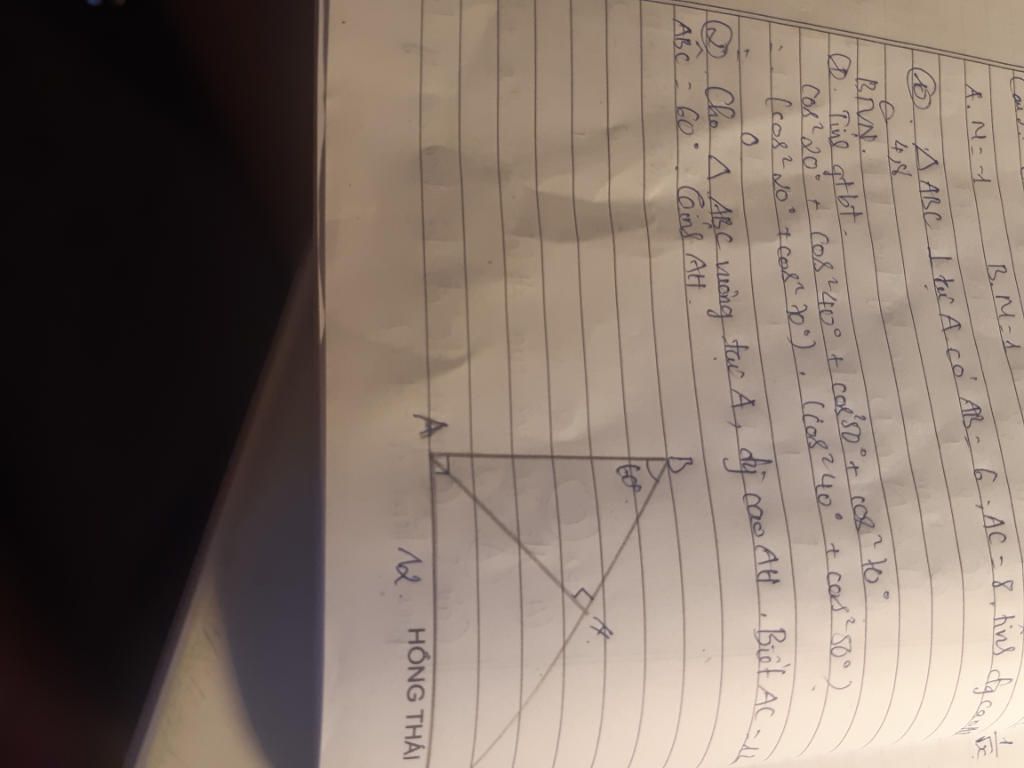 A. M = -1 B. M = 1
⑥. Δ ABC ⊥ tại A có AB = 6, AC = 8, tính
4,8
B. TLN.
①. Tính gtbt.
cos² 20° + cos² 40° + cos² 50° + cos² 70°
(cos² 20° + cos² 70°). (cos² 40° + cos² 50°)
②. Cho Δ ABC vuông tại A, đg cao AH. Biết AC = 12
ABC = 60°. Tính AH.
B
60°
A
H
12.
HỒNG THÁI